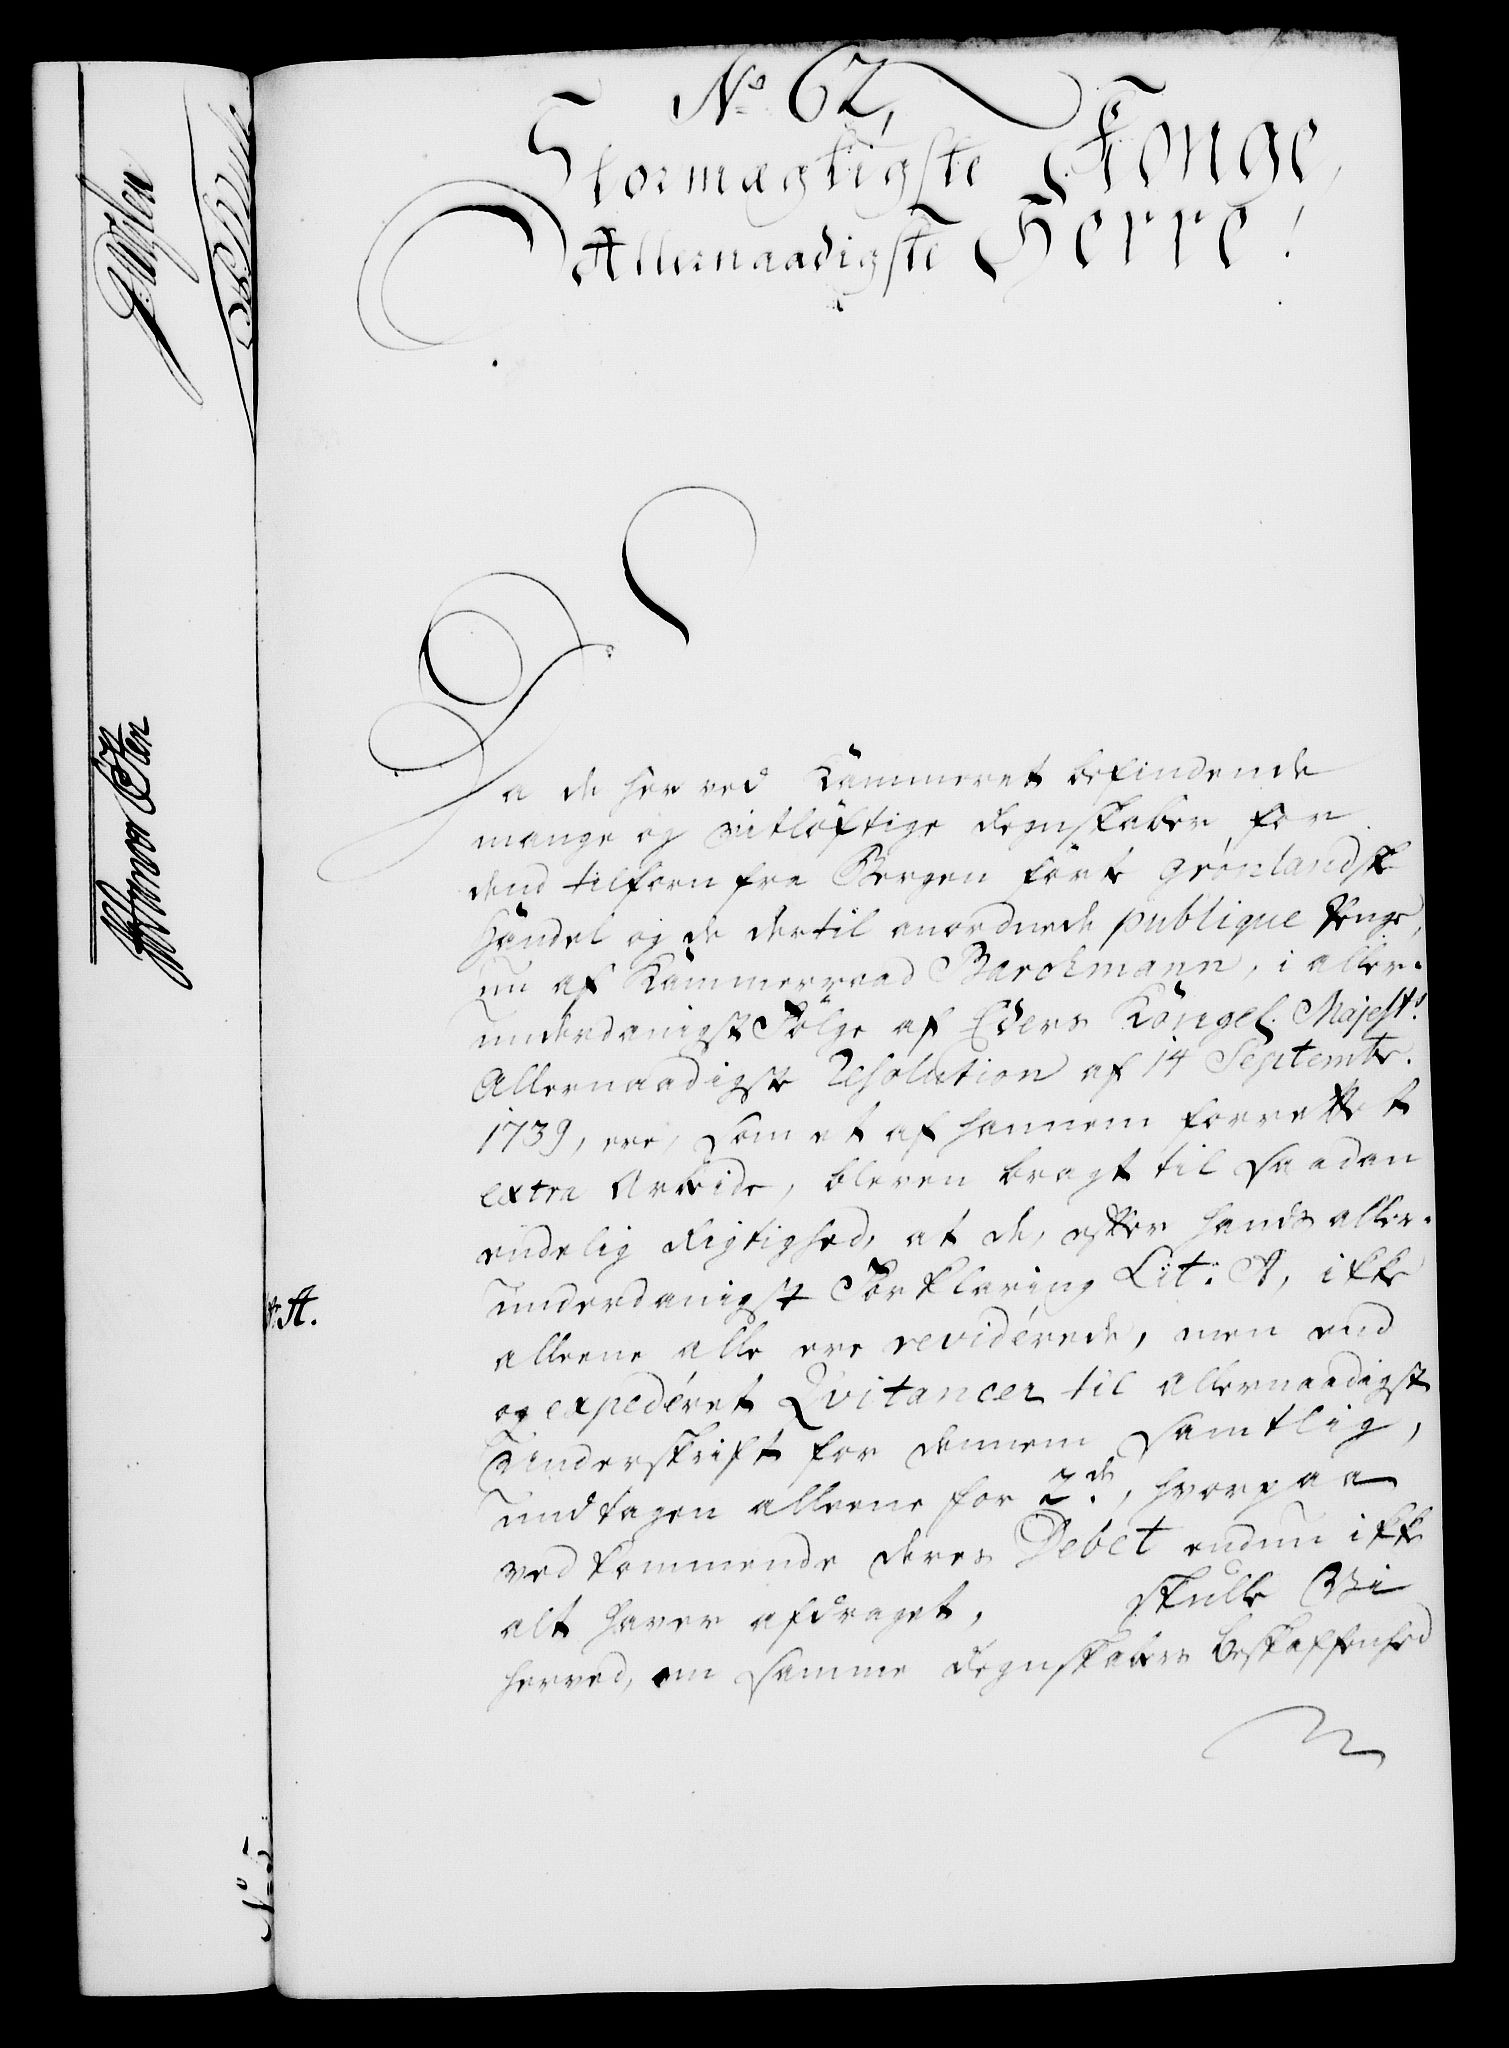 No 62,
Stormægtigste Konge,
Allernaadigste Herre!
Da de her ved Kammeret befindende
mange og vitløftige Regnskaber for
dend tilforn fra Bergen førte Grönlandske
Handel og de dertil anordnede publique Penge,
nu af Kammerraad Barchmann, i aller-
underdanigst Følge af Eders Kongel. Majestts
Allernaadigste Resolution af 14 Septembr.
1739, ere, som et af hannem forrettet
extra Arbeide, bleven bragt til saadan
endelig Rigtighed, at de, efter hands aller-
underdanigst Forklaring Lit: A, ikke
A.
alleene alle ere reviderede, men end
og expederet Qvitancer til allernaadigst
Underskrift for dennem samtlig,
undtagen alleene for 2de, hvorpaa
vedkommende deres Debet endnu ikke
alt haver afdraget, skulle Vi
herved, om samme Regnskabers beskaffenhed
No 5